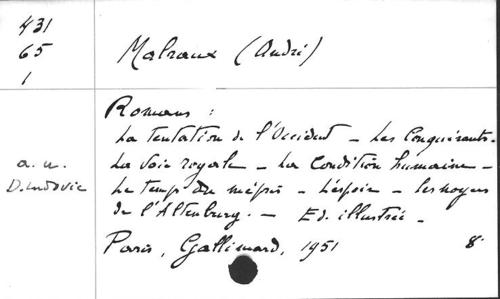 431
65
1
Malraux (André)
Romans :
La Tentation de l'Occident - Les Conquérants.
La Voie royale - La Condition humaine -
Le Temps du mépris - L'espoir - Les noyers
de l'Altenburg. - Ed. illustrée -
Paris, Gallimard, 1951 8°
a. n.
D. Ludovic